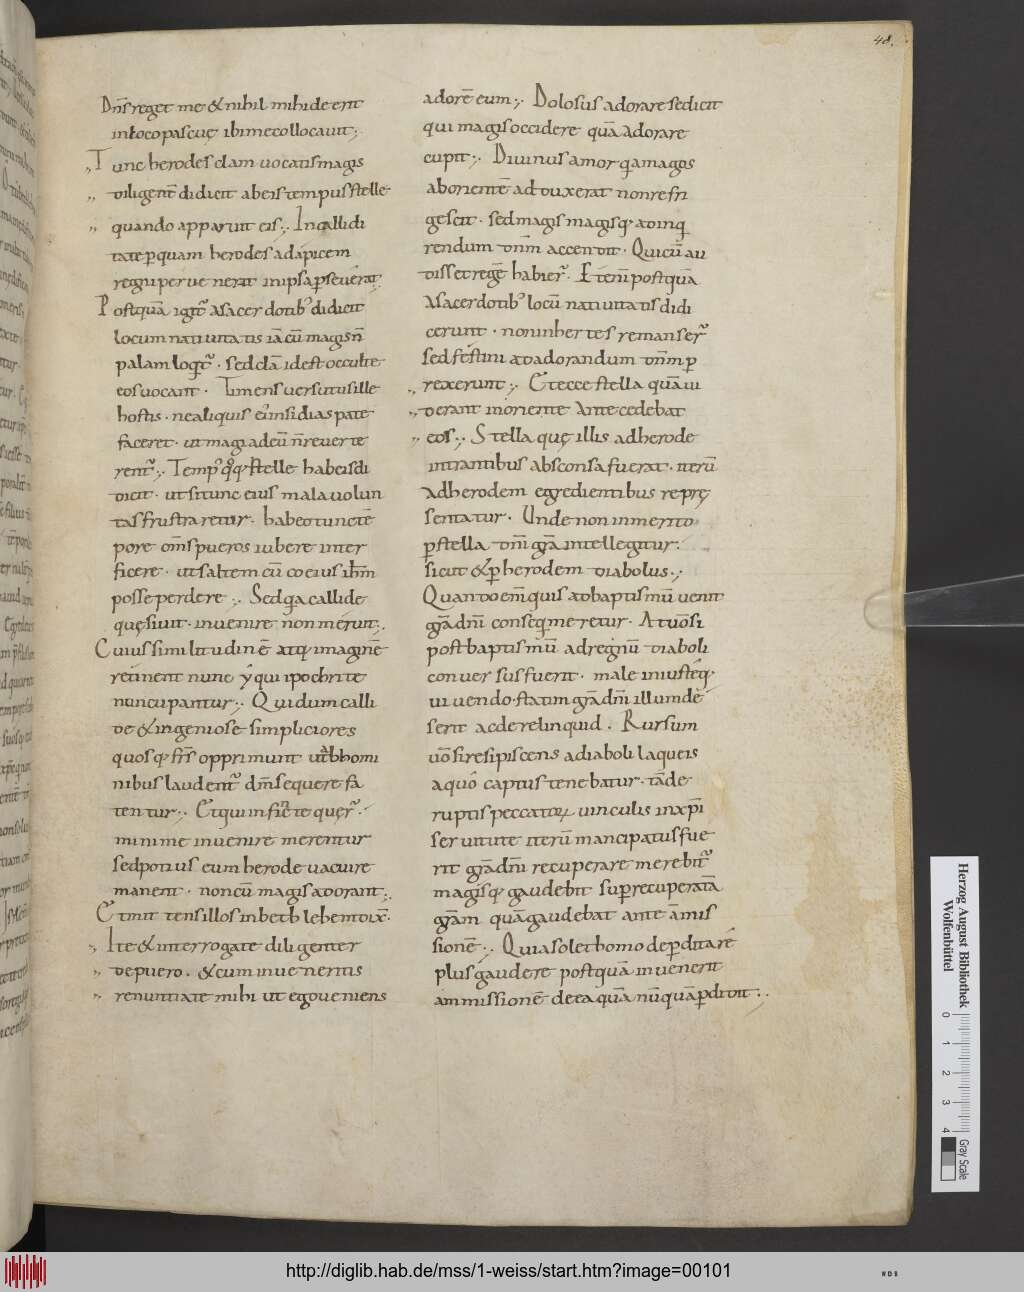 48.
Dn̄s reget me & nihil mihi deerit
in loco pascuę ibi me collocauit;
Tunc herodes clam uocatis magis
diligent̄ didicit ab eis tempus stelle
quando apparuit eis; In calliditate
tate p̄quam herodes ad apicem
regni peruenerat in ipsa p̄seuerat.
Postquā igit̄ a sacerdotib; didicit
locum natiuitatis iā cū magis n̄
palam loq̄t̄ · sed clā id est occulte
eos uocauit · Timens uersutus ille
hostis · ne aliquis ei insidias pate
faceret · ut magi ad eū n̄ reuerte
rent̄; Temp; q̄q; stelle hab eis di
dicit · ut si tunc eius mala uolun
tas frustraretur · habeo tunc tē
pore om̄s pueros iubere inter
ficere · ut saltem cū co eius ihm̄
posse perdere; Sed q̄a callide
quęsiuit · inuenire non meruit;
Cuius similitudinē atq; imaginē
retinent nunc hy qui ipochrite
nuncupantur; Qui dum calli
de & ingeniose simpliciores
quosq; frs̄ opprimunt ut ab homi
nibus laudent̄ dm̄ sequere fa
tentur; Et qui inficte quer̄ ·
minime inuenire merentur
sed potius cum herode uacuire
manent · non cū magis adorant;
Et mittens illos in bethlehem dix̄ ·
Ite & interrogate diligenter
de puero · & cum inueneritis
renuntiate mihi ut ego ueniens
adorē eum; Dolosus adorare se dicit
qui magis occidere quā adorare
cupit; Diuinus amor q̄a magos
ab orientē adduxerat non refri
gescit · sed magis magisq; ad inq̄
rendum dnm̄ accendit · Quicū au
disset regē habier̄ · Et ten̄ postquā
A sacerdotib; locū natiuitatis didi
cerunt · non inhertes remanser̄
sed festini ad adorandum dnm̄ p
rexerunt; Et ecce stella quā ui
derant in oriente Antecedebat
eos; Stella quę illis ad herode
intrantibus absconsa fuerat · iterū
Ad herodem egredientibus reprę
sentatur · Unde non inmerito
p̄ stella dnī gr̄a intellegitur ·
sicut & p̄ herodem diabolus;
Quando em̄ quis ad baptismū uenit
gr̄ā dnī conseq̄mereretur · At uō si
post baptismū ad regnū diaboli
conuersus fuerit · male iniusteq;
uiuendo · statim gr̄ā dnī illum de
serit ac derelinquid · Rursum
uō si resipiscens a diaboli laqueis
a quo captus tenebatur · tāde
ruptis peccatoꝝ uinculis in xp̄i
seruitute iterū mancipatus fue
rit gr̄ā dnī recuperare merebit̄
magisq; gaudebit sup̄ recuperatā
gr̄am quā gaudebat ante āmis
sionē; Quia solet homo de p̄dita rē
plus gaudere postquā inuenerit
ammissionē de ea quā nūquā p̄didit;
Herzog August Bibliothek
Wolfenbüttel
0 1 2 3 4
Gray Scale
http://diglib.hab.de/mss/1-weiss/start.htm?image=00101